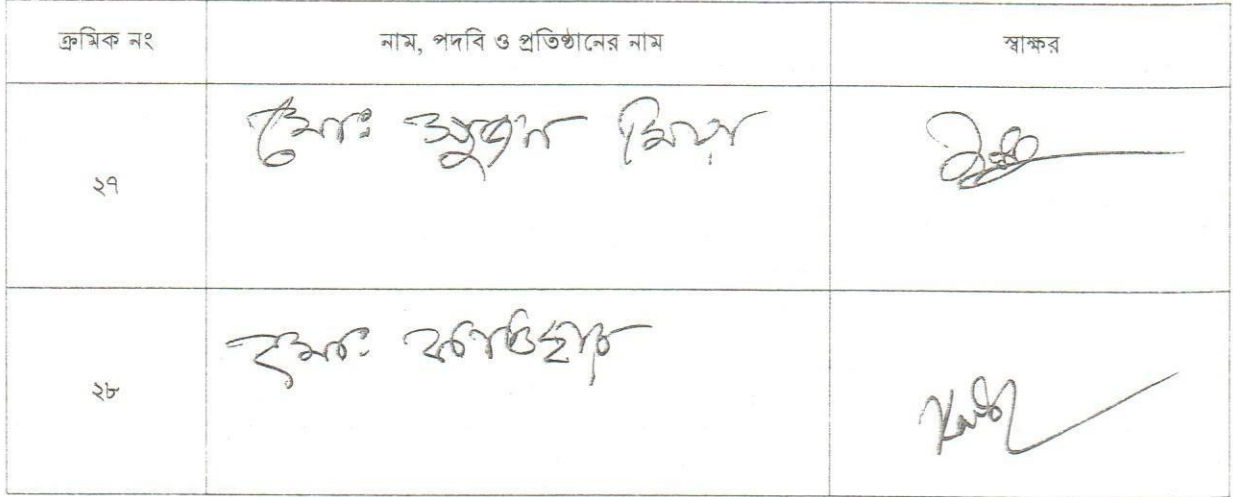 ক্রমিক নং নাম, পদবি ও প্রতিষ্ঠানের নাম স্বাক্ষর
২৭ মোঃ সুজন মিয়া
২৮ মোঃ কাওছার